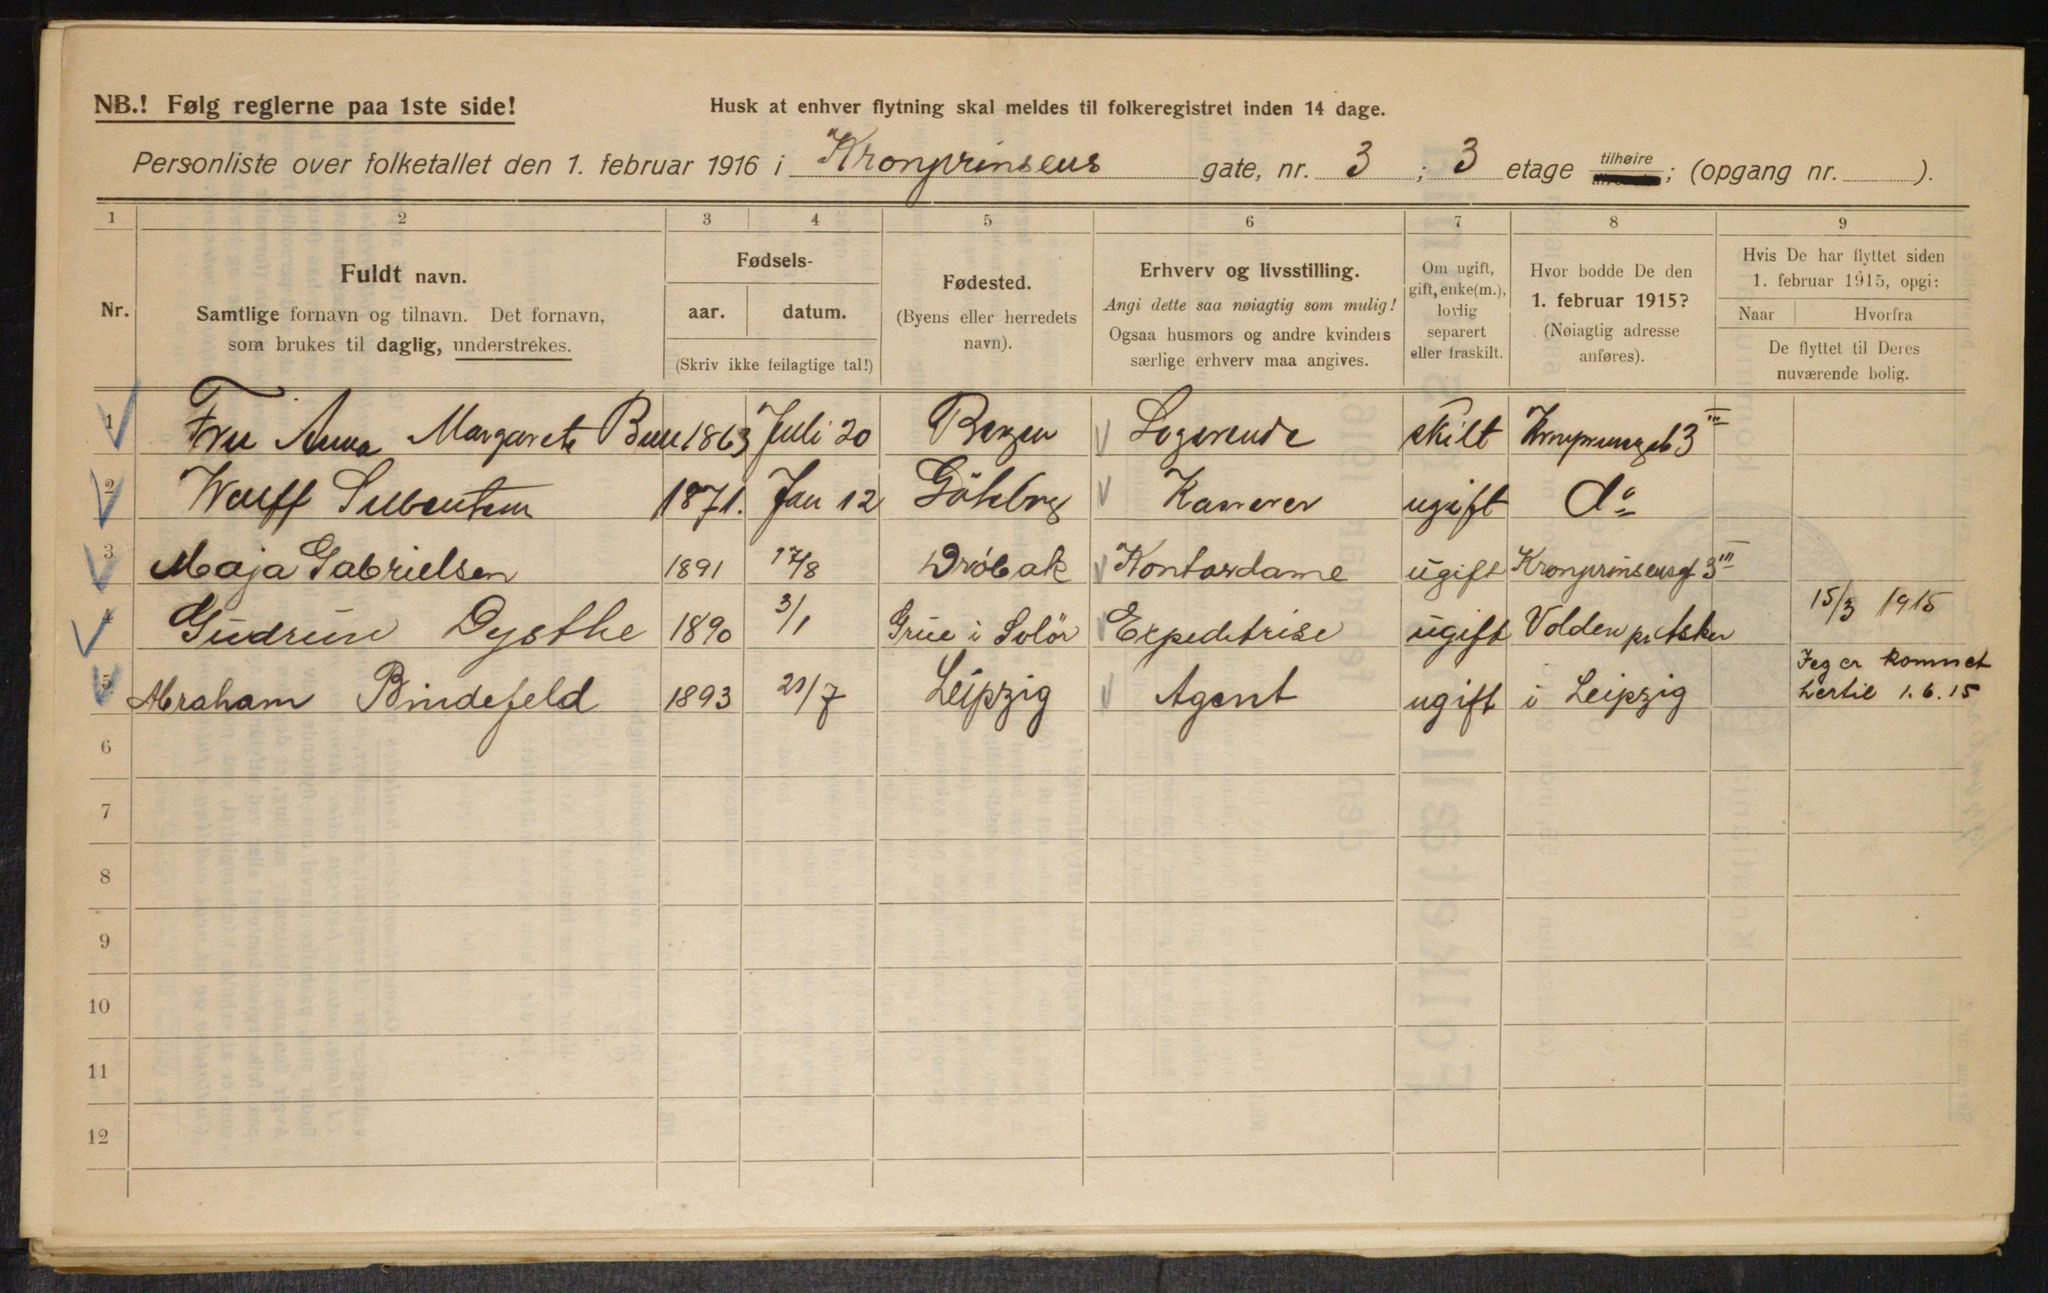 NB.! Følg reglerne paa 1ste side!
Husk at enhver flytning skal meldes til folkeregistret inden 14 dage.
Personliste over folketallet den 1. februar 1916 i Kronprinsens gate, nr. 3 ; 3 etage tilhøire ; (opgang nr. ).
1 2 3 4 5 6 7 8 9
Nr.
Fuldt navn.
Samtlige fornavn og tilnavn. Det fornavn,
som brukes til daglig, understrekes.
Fødsels-
aar. datum.
(Skriv ikke feilagtige tal!)
Fødested.
(Byens eller herredets
navn).
Erhverv og livsstilling.
Angi dette saa nøiagtig som mulig!
Ogsaa husmors og andre kvinders
særlige erhverv maa angives.
Om ugift,
gift, enke(m.),
lovlig
separert
eller fraskilt.
Hvor bodde De den
1. februar 1915?
(Nøiagtig adresse
anføres).
Hvis De har flyttet siden
1. februar 1915, opgi:
Naar Hvorfra
De flyttet til Deres
nuværende bolig.
1 Fru Anna Margarete Buu 1863 Juli 20 Bergen Logerende skilt 3 III
2 Wulff 1871. Jan 12 Göteborg Kaserer ugift do
3 Maja Gabrielsen 1891 17/8 Drøbak Kontordame ugift Kronprinsensgt 3 III
4 Gudrun Dysthe 1890 3/1 Grue i Solör Expeditrise ugift Volden pr Asker 15/3 1915
5 Abraham Bindefeld 1893 21/7 Leipzig Agent ugift i Leipzig Jeg er kommet
hertil 1.6.15
6
7
8
9
10
11
12